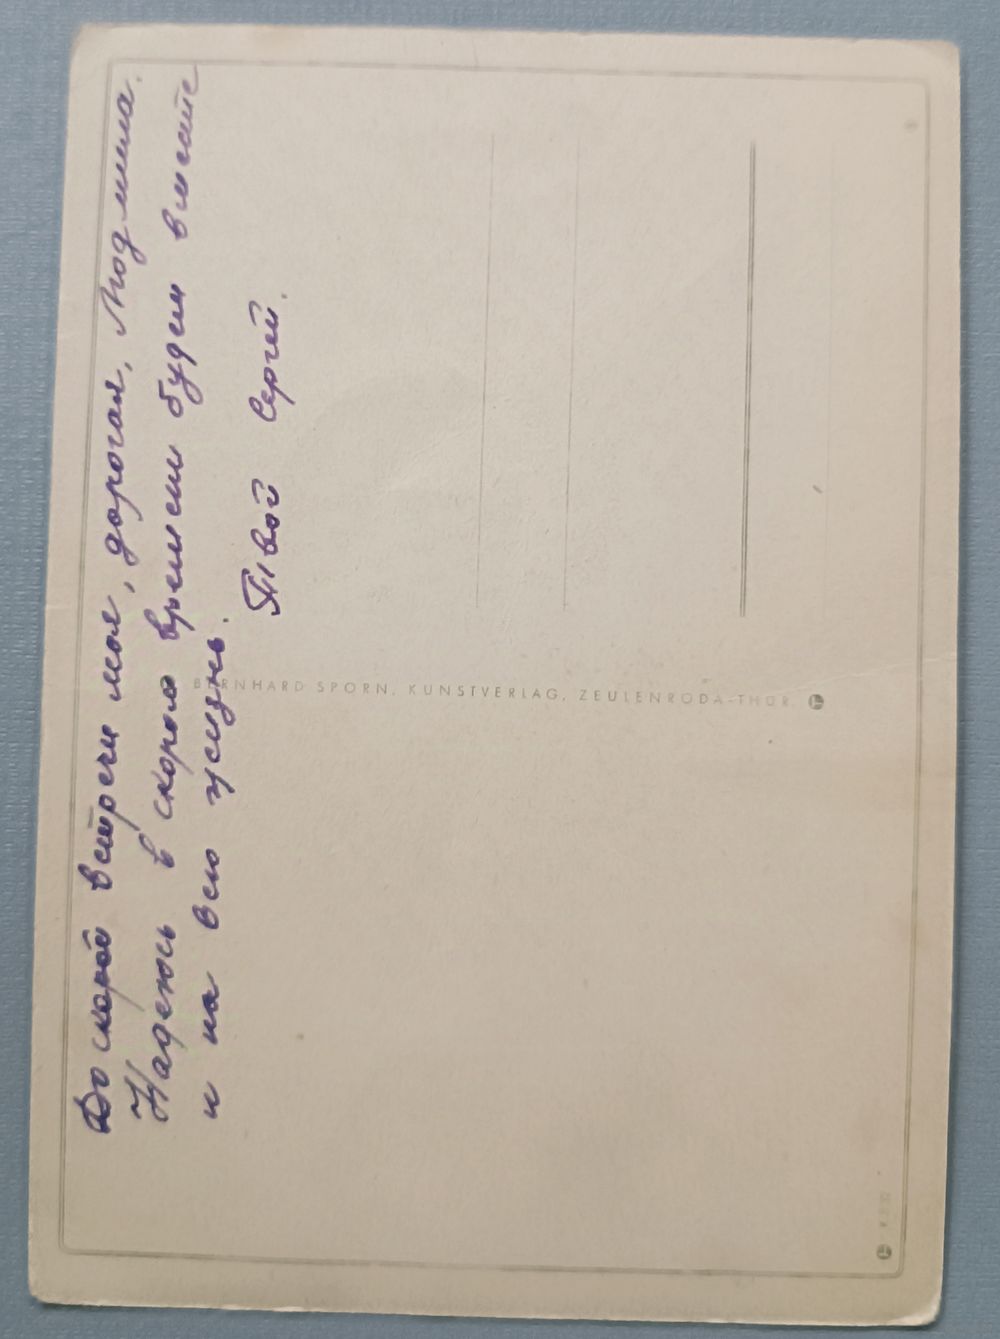 До скорой встречи моя, дорогая, Людмила.
Надеюсь в скором времени будем вместе
и на всю жизнь.
Твой Сергей.
BERNHARD SPORN, KUNSTVERLAG, ZEULENRODA-THÜR.